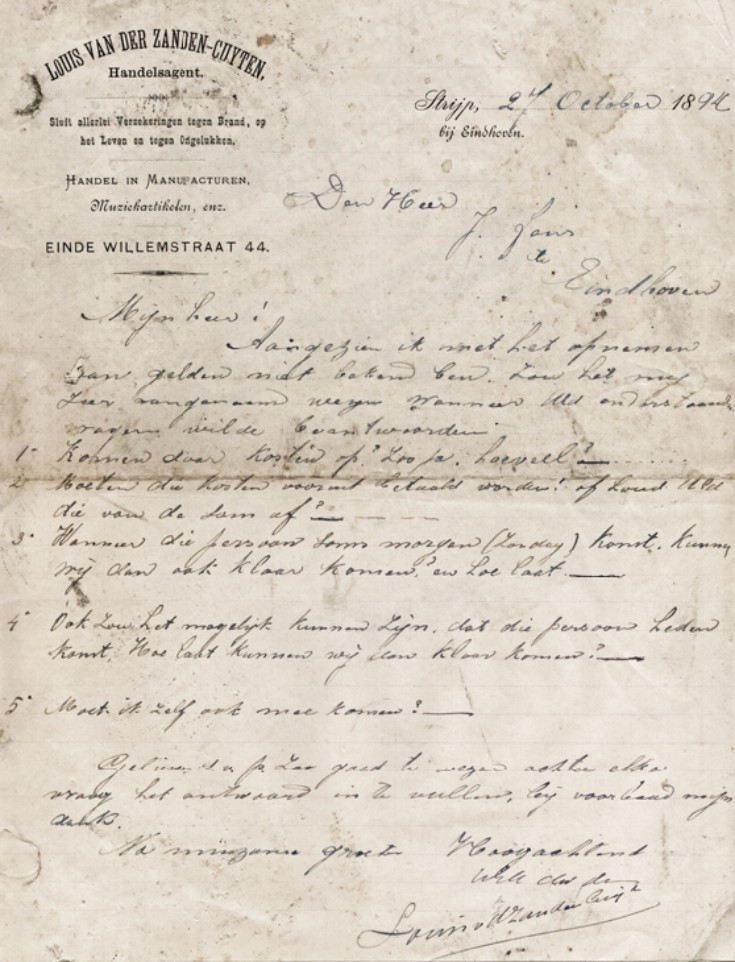 LOUIS VAN DER ZANDEN-CUYTEN,
Handelsagent.
Sluit allerlei Verzekeringen tegen Brand, op
het Leven en tegen Ongelukken.
HANDEL IN MANUFACTUREN,
Muziekartikelen, enz.
EINDE WILLEMSTRAAT 44.
Strijp, 27 October 1894
bij Eindhoven.
Den Heer
J.
te
Eindhoven
Mijnheer!
Aangezien ik met het opnemen
van gelden niet bekend ben. Zou het mij
zeer aangenaam wezen wanneer UEd onderstaande
vragen wilde beantwoorden
1° Komen daar kosten op? Zoo ja, hoeveel?
2° Moeten die kosten vooruit betaald worden! of houd UEd
die van de som af?
3° Wanneer die persoon soms morgen (Zondag) komt. Kunnen
wij dan ook klaar komen? en hoe laat
4° Ook zou het mogelijk kunnen zijn, dat die persoon heden
komt, Hoe laat kunnen wij dan klaar komen?
5° Moet ik zelf ook mee komen?
Gelieve s.v.p. zoo goed te wezen achter elke
vraag het antwoord in te vullen, bij voorbaad mijn
dank.
Na minzame groete Hoogachtend
UEd dw dn
Louis vd Zanden Cuyt